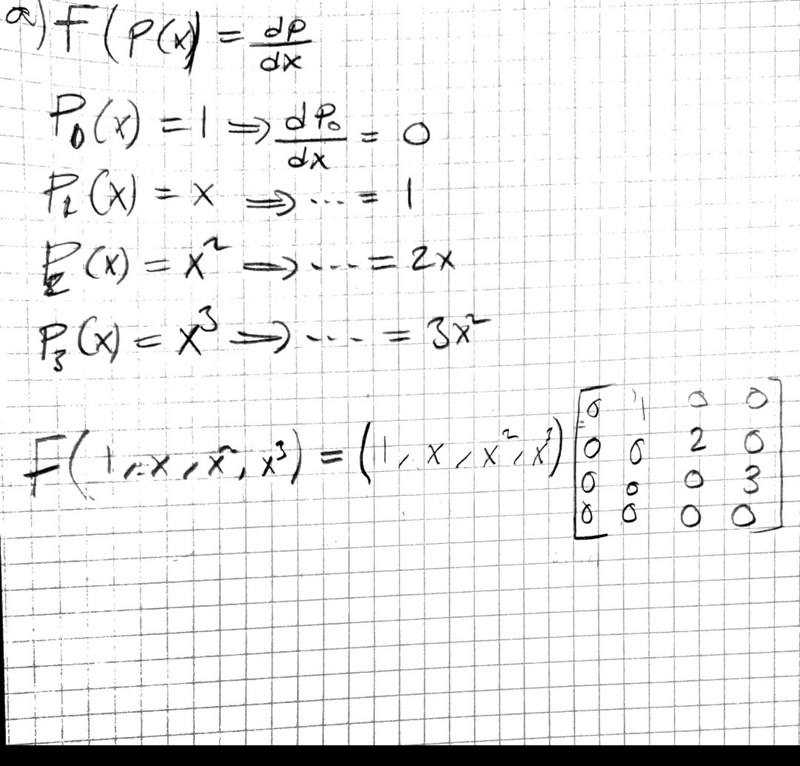 a) F(P(x) = dP/dx
P₀(x) = 1 ⇒ dP₀/dx = 0
P₁(x) = x ⇒ ... = 1
P₂(x) = x² ⇒ ... = 2x
P₃(x) = x³ ⇒ ... = 3x²
F(1, x, x², x³) = (1, x, x², x³) [0 1 0 0
0 0 2 0
0 0 0 3
0 0 0 0]